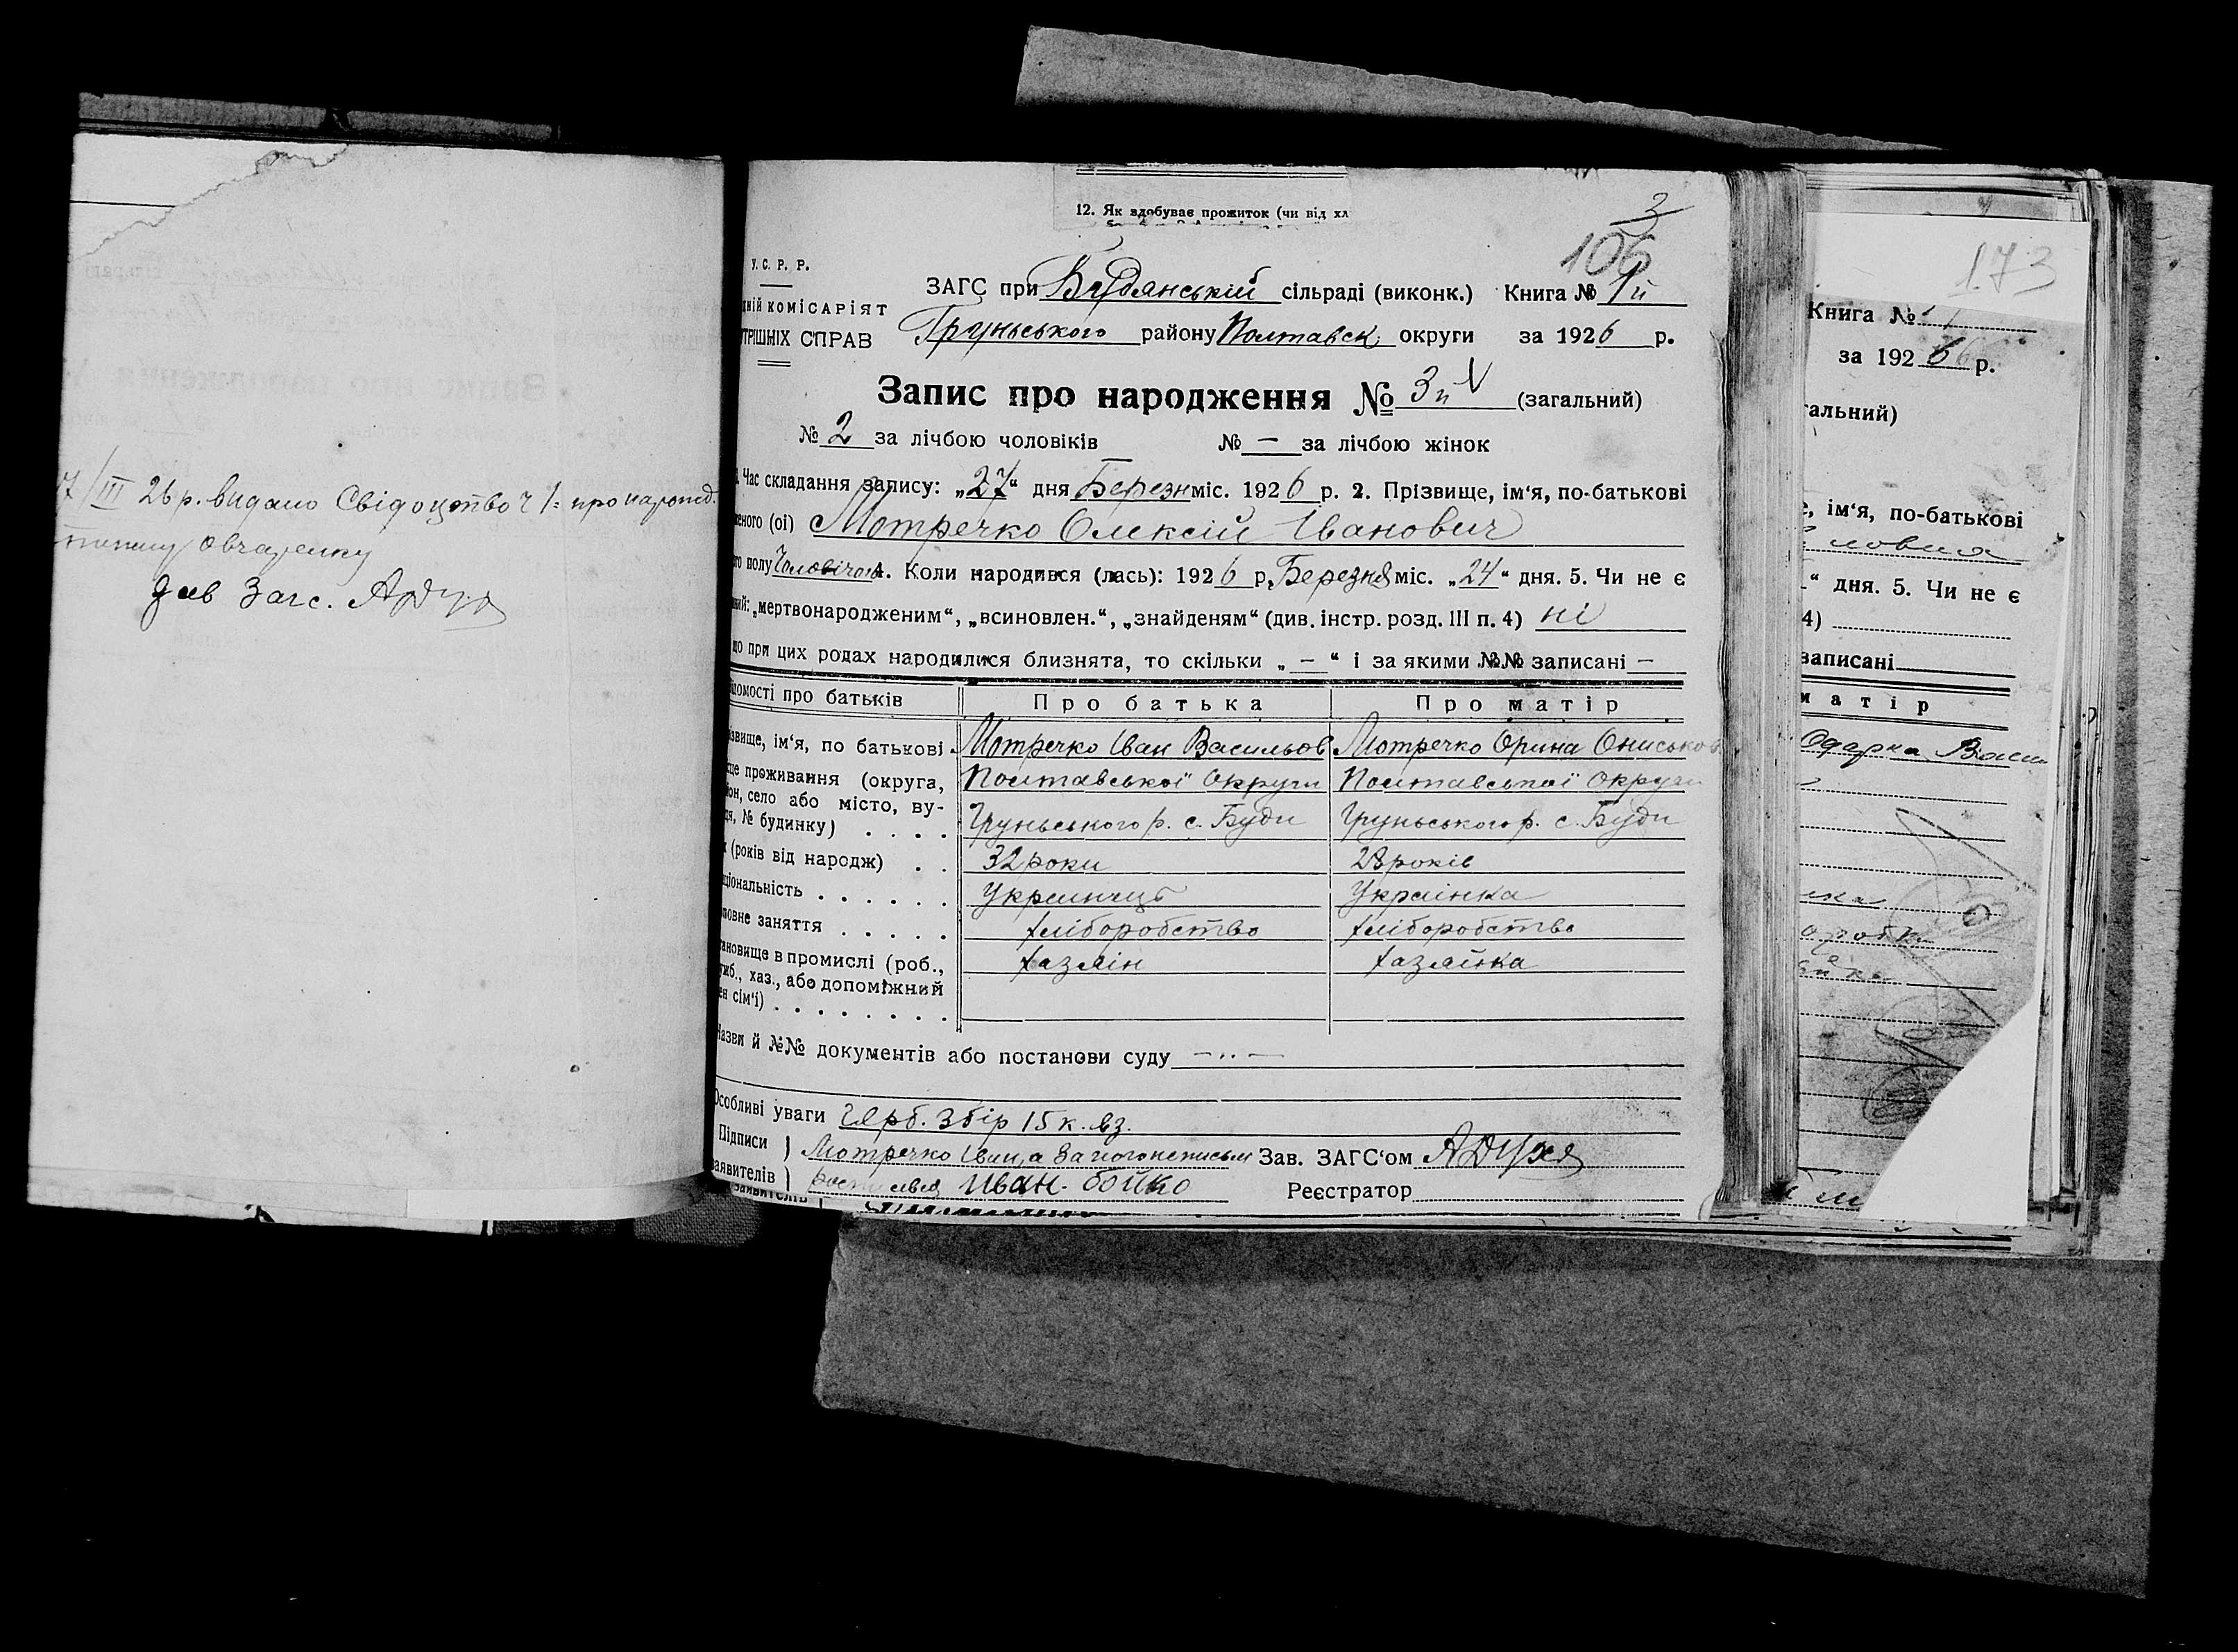 /III 26 р. видано Свідоцтво Ч 1: про народ.
Овчаренку
Зав Загс. АДухя
12. Як здобуває прожиток (чи від хл
3
106
У. С. Р. Р.
ЗАГС при Будянській сільраді (виконк.) Книга № 1й
дній КОМІСАРІЯТ
ТРІШНІХ СПРАВ
Груньського району Полтавськ округи за 1926 р.
Запис про народження № 3й V (загальний)
№ 2 за лічбою чоловіків № — за лічбою жінок
Час складання запису: „27“ дня Березня міс. 1926 р. 2. Прізвище, ім‘я, по-батькові
еного (ої) Мотречко Олексій Іванович
го полу Чоловічого 4. Коли народився (лась): 1926 р. Березня міс. „24“ дня. 5. Чи не є
ний: „мертвонародженим“, „всиновлен.“, „знайденям“ (див. інстр. розд. III п. 4) ні
що при цих родах народилися близнята, то скільки „ — “ і за якими №№ записані —
ідомості про батьків Про батька Про матір
ізвище, ім‘я, по батькові Мотречко Іван Васильов Мотречко Орина Ониськов
ще проживання (округа, Полтавської Округи Полтавської Округи
он, село або місто, ву-
ця, № будинку) . . . . Груньського р. с. Буди Груньського р. с. Буди
к (років від народж) . . 32 роки 28 років
ціональність . . . . . . Украинець Украінка
ловне заняття . . . . . хліборобство хліборобство
ановище в промислі (роб., хазяін хазяйка
ужб., хаз., або допоміжний
ен сім‘ї) . . . . . . . .
Назви й №№ документів або постанови суду — ·· —
Особливі уваги Герб. Збір 15 к. вз.
Підписи Мотречко Івана, а за його неписьм Зав. ЗАГС‘ом АДухя
заявителів Иван Бойко Реєстратор
заявителів
173
Книга № 1
за 1926 р.
гальний)
е, ім‘я, по-батькові
“ дня. 5. Чи не є
4)
записані
матір
Одарка Васи